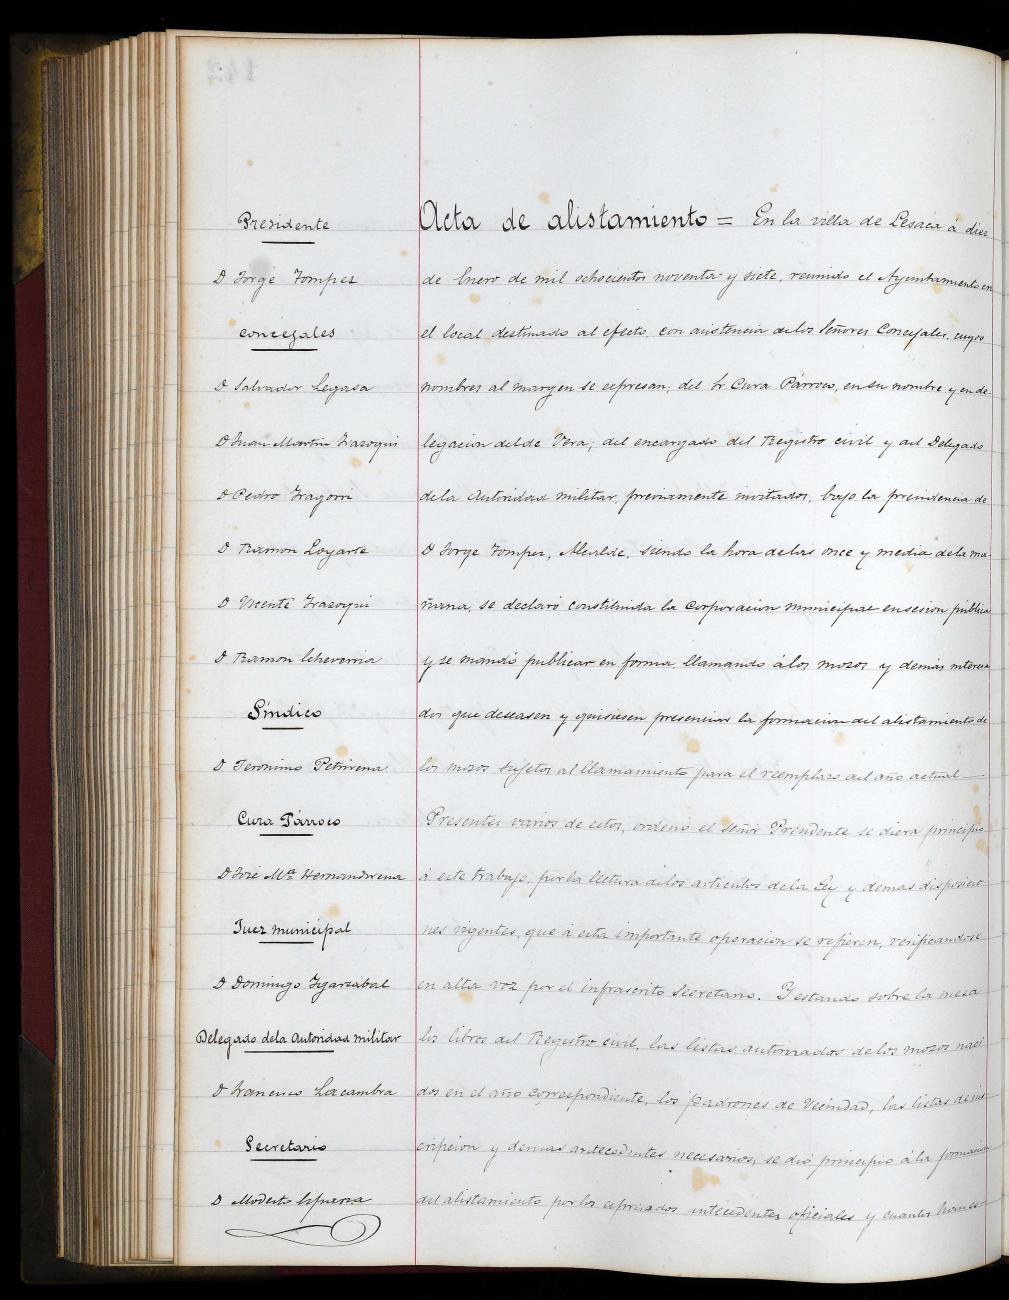 Presidente
D Jorge Tomper
Concejales
D Salvador Legasa
D Juan Martin Irazoqui
D Pedro Iragorri
D Ramon Loyarte
D Vicente Irazoqui
D Ramon Echeverria
Síndico
D Jeronimo Petrirena
Cura Párroco
D José Mª Hernandorena
Juez municipal
D Domingo Igarzabal
Delegado dela Autoridad militar
D Francisco Lacambra
Secretario
D Modesto Esparza
Acta de alistamiento = En la villa de Lesaca á diez
de Enero de mil ochocientos noventa y siete, reunido el Ayuntamiento en
el local destinado al efecto, con asistencia de los Señores Concejales, cuyos
nombres al margen se expresan; del Sr Cura Párroco, en su nombre y en de-
legacion del de Vera; del encargado del Registro civil y del Delegado
dela Autoridad militar, previamente invitados, bajo la presidencia de
D Jorge Tomper, Alcalde, siendo la hora delas once y media dela ma-
ñana, se declaró constituida la Corporacion municipal en sesion pública
y se mandó publicar en forma llamando álos mozos y demás interesa
dos que deseasen y quisiesen presenciar la formacion del alistamiento de
los mozos sujetos al llamamiento para el reemplazo del año actual
Presentes varios de estos, ordenó el señor Presidente se diera principio
á este trabajo, por la lectura delos articulos dela Ley y demas disposicio
nes vigentes, que á esta importante operacion se refieren, verificandose
en alta voz por el infrascrito Secretario. Y estando sobre la mesa
los libros del Registro civil, las listas autorizadas de los mozos naci
dos en el año correspondiente, los padrones de Vecindad, las listas de ins
cripcion y demas antecedentes necesarios, se dió principio á la formacion
del alistamiento por los expresados antecedentes oficiales y cuantos